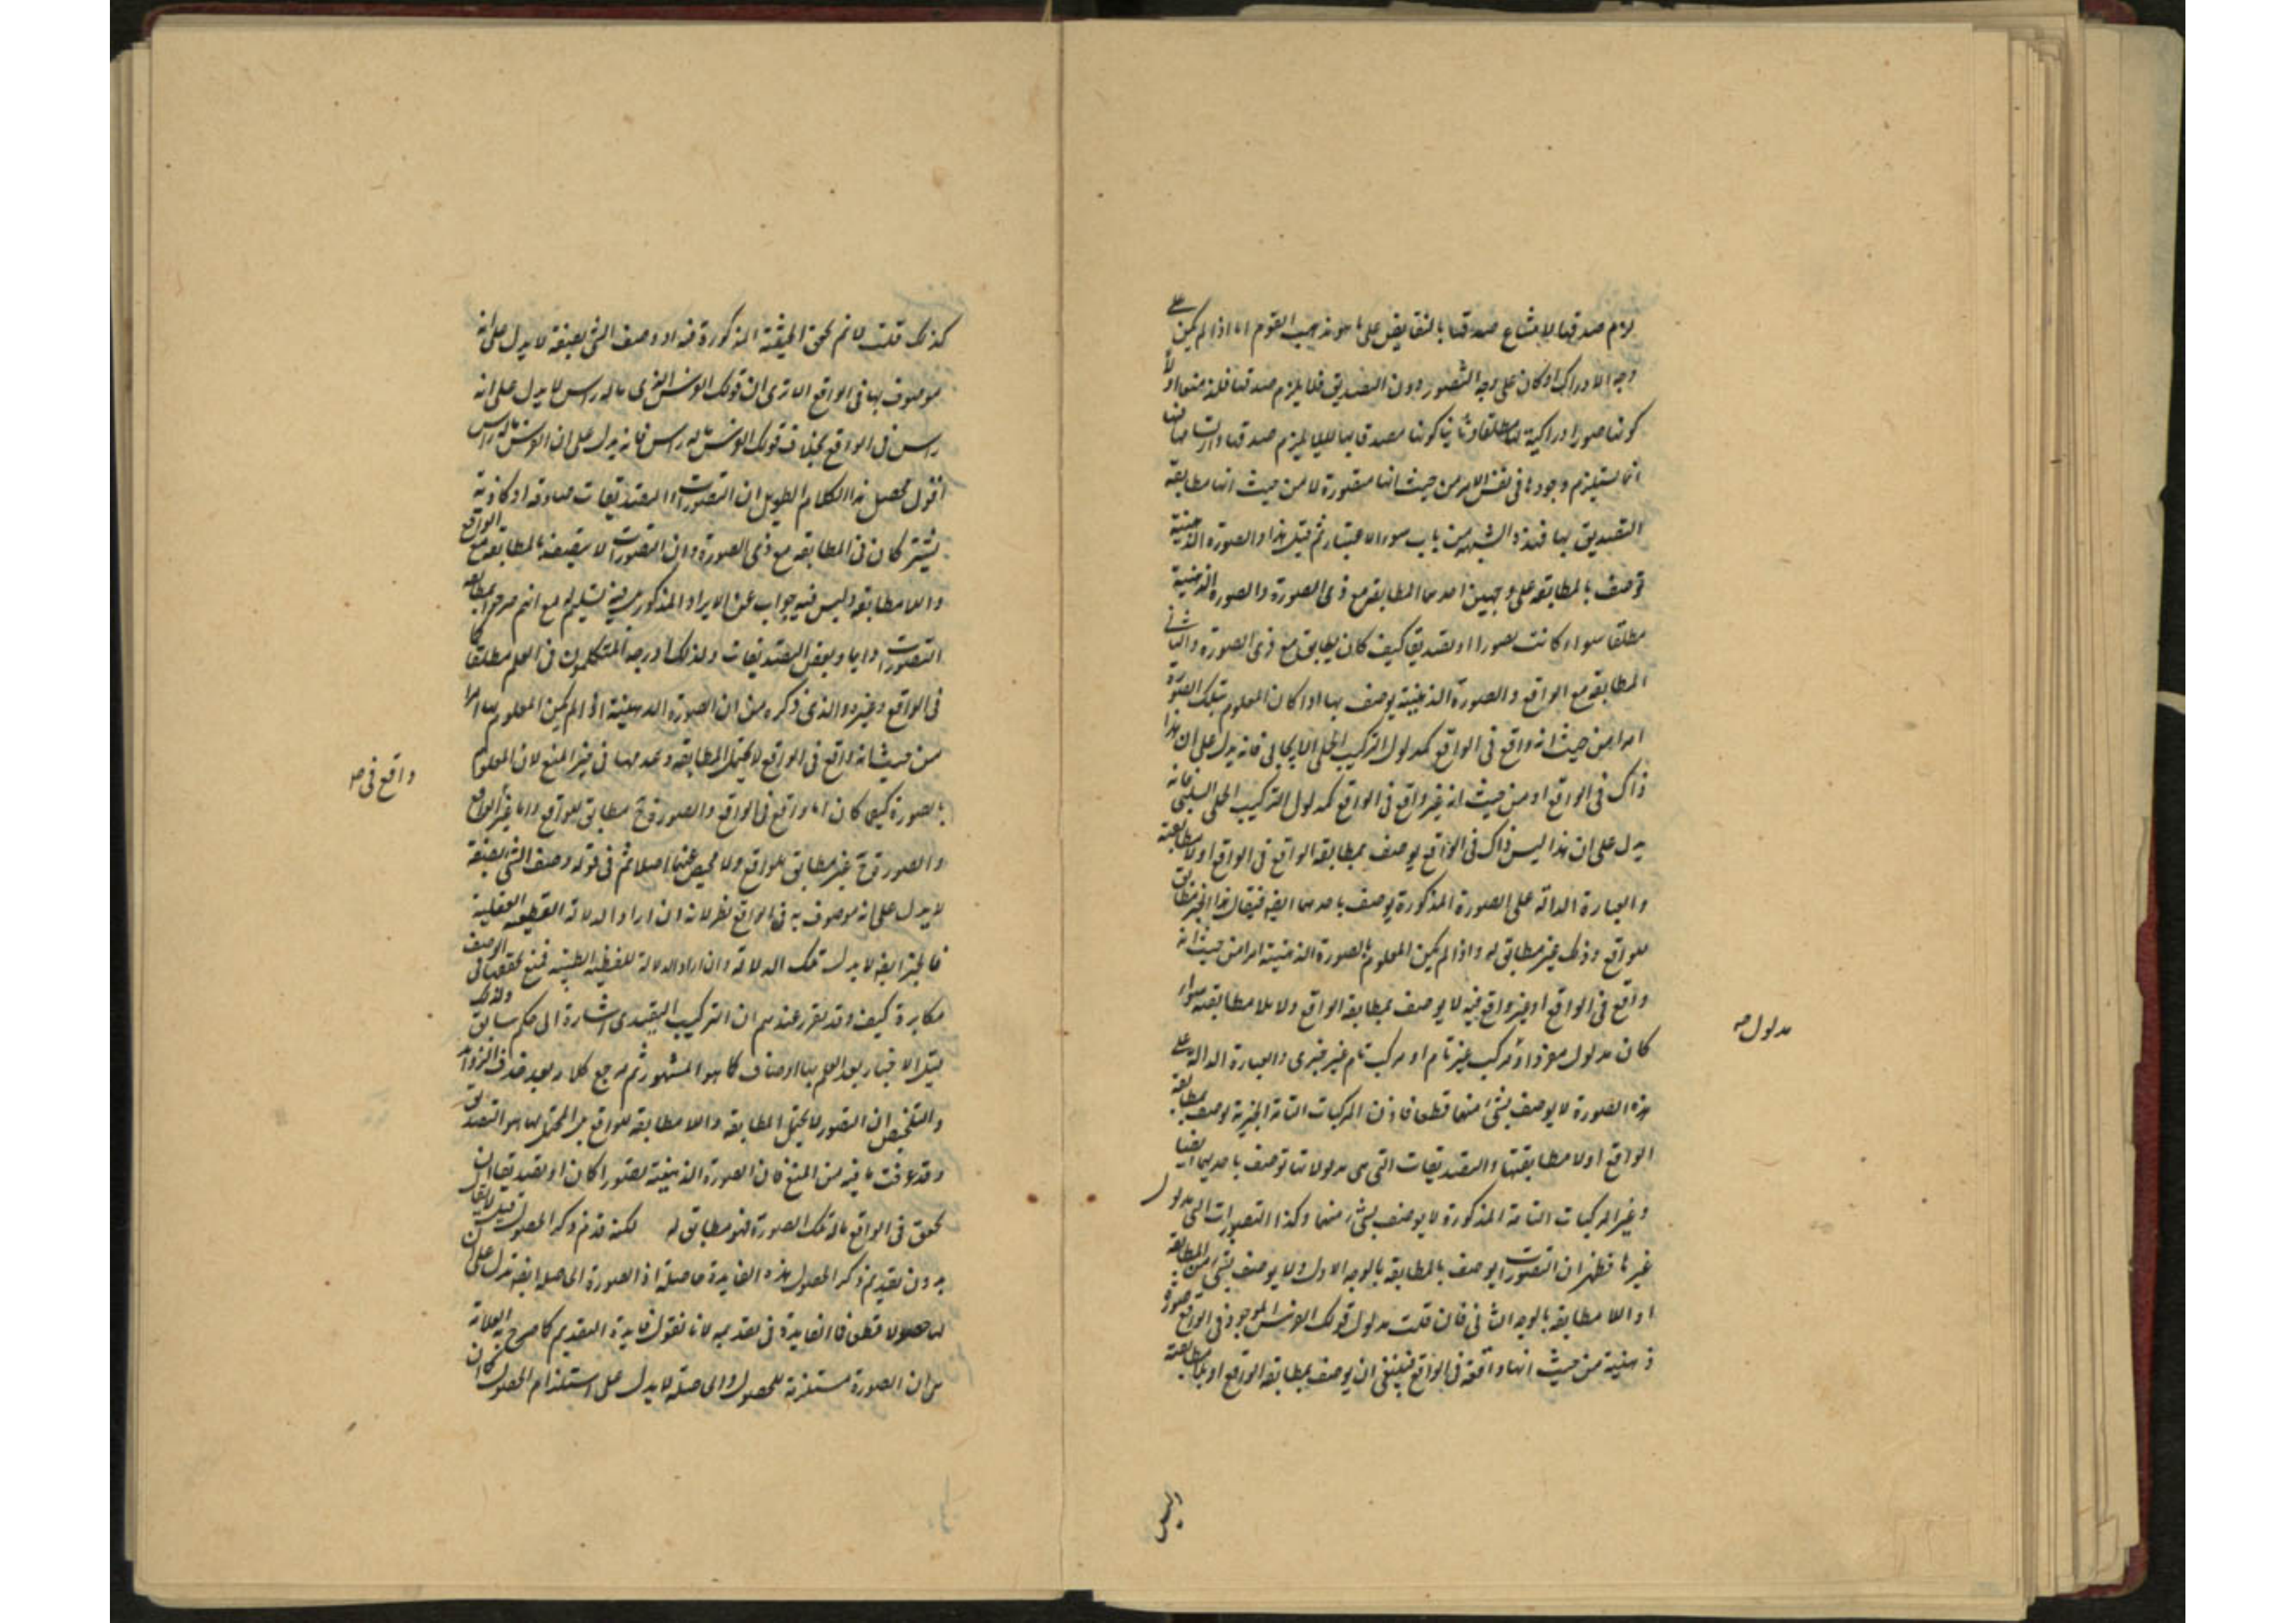 لازم صدقها لامتناع صدقها بالنقايض على ما هو مذهب القوم اما اذا لم يكن على
وجه الادراك او كان على وجه التصور دون التصديق فلا يلزم صدقها فلنا منع اولا
كونها صورا ادراكية مطلقا وثانيا كونها مصدقا بها لئلا يلزم صدقها
انما يستلزم وجودها فى نفس الامر من حيث انها متصورة لا من حيث انها مطابقة
التصديق بها فهذه الشبهة من باب سوء الاعتبار ثم قيل هذا والصورة الذهنية
توصف بالمطابقة على وجهين احدهما المطابقة مع ذى الصورة والصورة الذهنية
مطلقا سواء كانت تصورا او تصديقا كيف كان يطابق مع ذى الصورة والثانى
المطابقة مع الواقع والصورة الذهنية يوصف بها اذا كان المعلوم بتلك الصورة
امرا من حيث انه واقع فى الواقع كمدلول التركيب الحملى الايجابى فانه يدل على ان هذا
ذاك فى الواقع او من حيث انه غير واقع فى الواقع كمدلول التركيب الحملى السلبى فانه
يدل على ان هذا ليس ذاك فى الواقع يوصف بمطابقة الواقع فى الواقع او لا مطابقته
والعبارة الدالة على الصورة المذكورة يوصف باحدهما ايضا فيقال هذا الخبر مطابق
للواقع وذلك غير مطابق له واذا لم يكن المعلوم بالصورة الذهنية امرا من حيث انه
واقع فى الواقع او غير واقع فيه لا يوصف بمطابقة الواقع ولا بلا مطابقته سواء
كان مدلول مفرد او مركب غير تام او مركب تام غير خبرى والعبارة الدالة على
مدلول صح
هذه الصورة لا يوصف بشئ منهما قطعا فاذن المركبات التامة الخبرية يوصف بمطابقة
الواقع او لا مطابقتها والتصديقات التى هى مدلولاتها توصف باحديهما ايضا
وغير المركبات التامة المذكورة لا يوصف بشئ منهما وكذا التصورات التى مدلول
غيرها فظهر ان التصورات يوصف بالمطابقة بالوجه الاول ولا يوصف بشئ من المطابقة
او اللا مطابقة بالوجه الثانى فان قلت مدلول قولك الفرس الموجود فى الواقع صورة
ذهنية من حيث انها واقعة فى الواقع فينبغى ان يوصف بمطابقة الواقع او بلا مطابقته
كذلك قلت لا نم تحقق الحيثية المذكورة فيه اذ وصف الشئ بصفة لا يدل على انه
موصوف بها فى الواقع الا ترى ان قولك الفرس الذى ماله راس لا يدل على انه
راس فى الواقع بخلاف قولك الفرس ماله راس فانه يدل على ان الفرس ماله راس
اقول محصل هذا الكلام الطويل ان التصورات والتصديقات صادقة او كاذبة
يشتركان فى المطابقة مع ذى الصورة وان التصورات لا يتصف بالمطابقة مع الواقع
واللا مطابقة وليس فيه جواب عن الايراد المذكور بل فيه تسليم له مع انهم صرحوا بمطابقة
التصورات دايما وبعض التصديقات ولذلك ادرجه المتكلمون فى العلم مطلقا
فى الواقع وغيره والذى ذكره من ان الصورة الذهنية اذا لم يكن المعلوم بها امرا
من حيث انه واقع فى الواقع لا يحتمل المطابقة وعدمها فى حيز المنع لان المعلوم
واقع فى صح
بالصورة كيف كان اما واقع فى الواقع والصورة ح مطابق للواقع واما غير الواقع
والصورة ح غير مطابق للواقع ولا محيص عنهما اصلا ثم فى قوله وصف الشئ بصفة
لا يدل على انه موصوف به فى الواقع نظر لانه ان اراد الدلالة القطعية العقلية
فالخبر ايضا لا يدل تلك الدلالة وان اراد الدلالة اللفظية الظنية فمنع تحققها فى الوصف
مكابرة كيف وقد تقرر عندهم ان التركيب التقييدى اشارة الى حكم سابق ولذلك
قيل الاخبار بعد العلم بها اوصاف كما هو المشهور ثم مرجع كلامه بعد حذف الزوايد
والتلخيص ان التصور لا يحتمل المطابقة واللا مطابقة للواقع بل المحتمل لها هو التصديق
وقد عرفت ما فيه من المنع فان الصورة الذهنية تصورا كان او تصديقا ان
تحقق فى الواقع ماله تلك الصورة فهو مطابق له لكنه قدم ذكر الحصول قيل لا يقال
بدون تقديم ذكر الحصول هذه الفايدة حاصلة اذ الصورة الحاصلة ايضا تدل على ان
لها حصولا قطعا فاالفايدة فى تقديمه لانا نقول فايدة التقديم كما صرح به العلامة
من ان الصورة مستلزمة للحصول والحاصلة لا يدل على استلزام الحصول